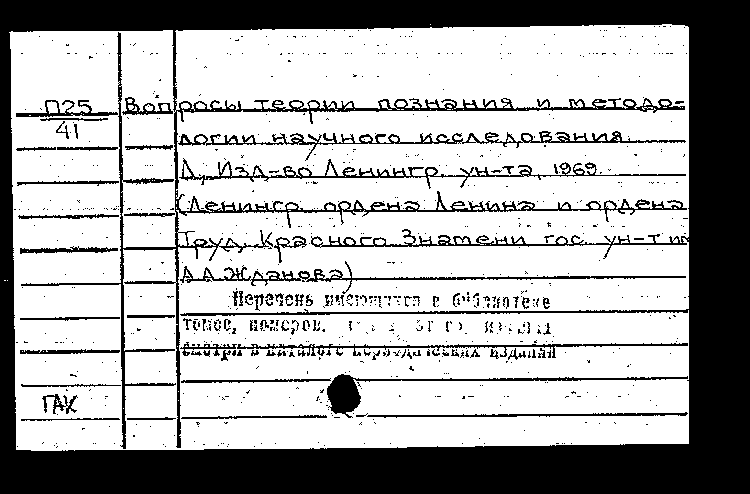 П25 Вопросы теории познания и методо=
41
логии научного исследования.
Л., Изд=во Ленингр. ун-та, 1969.
(Ленингр. ордена Ленина и ордена
Труд. Красного Знамени гос. ун-т им
А А Жданова)
Перечень имеющихся в библиотеке
томов, номеров,
смотри в каталоге периодических изданий
ГАК